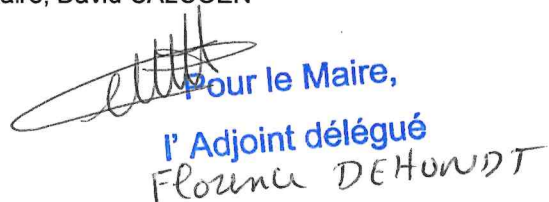 Pour le Maire,
l' Adjoint délégué
Florence DEHONDT